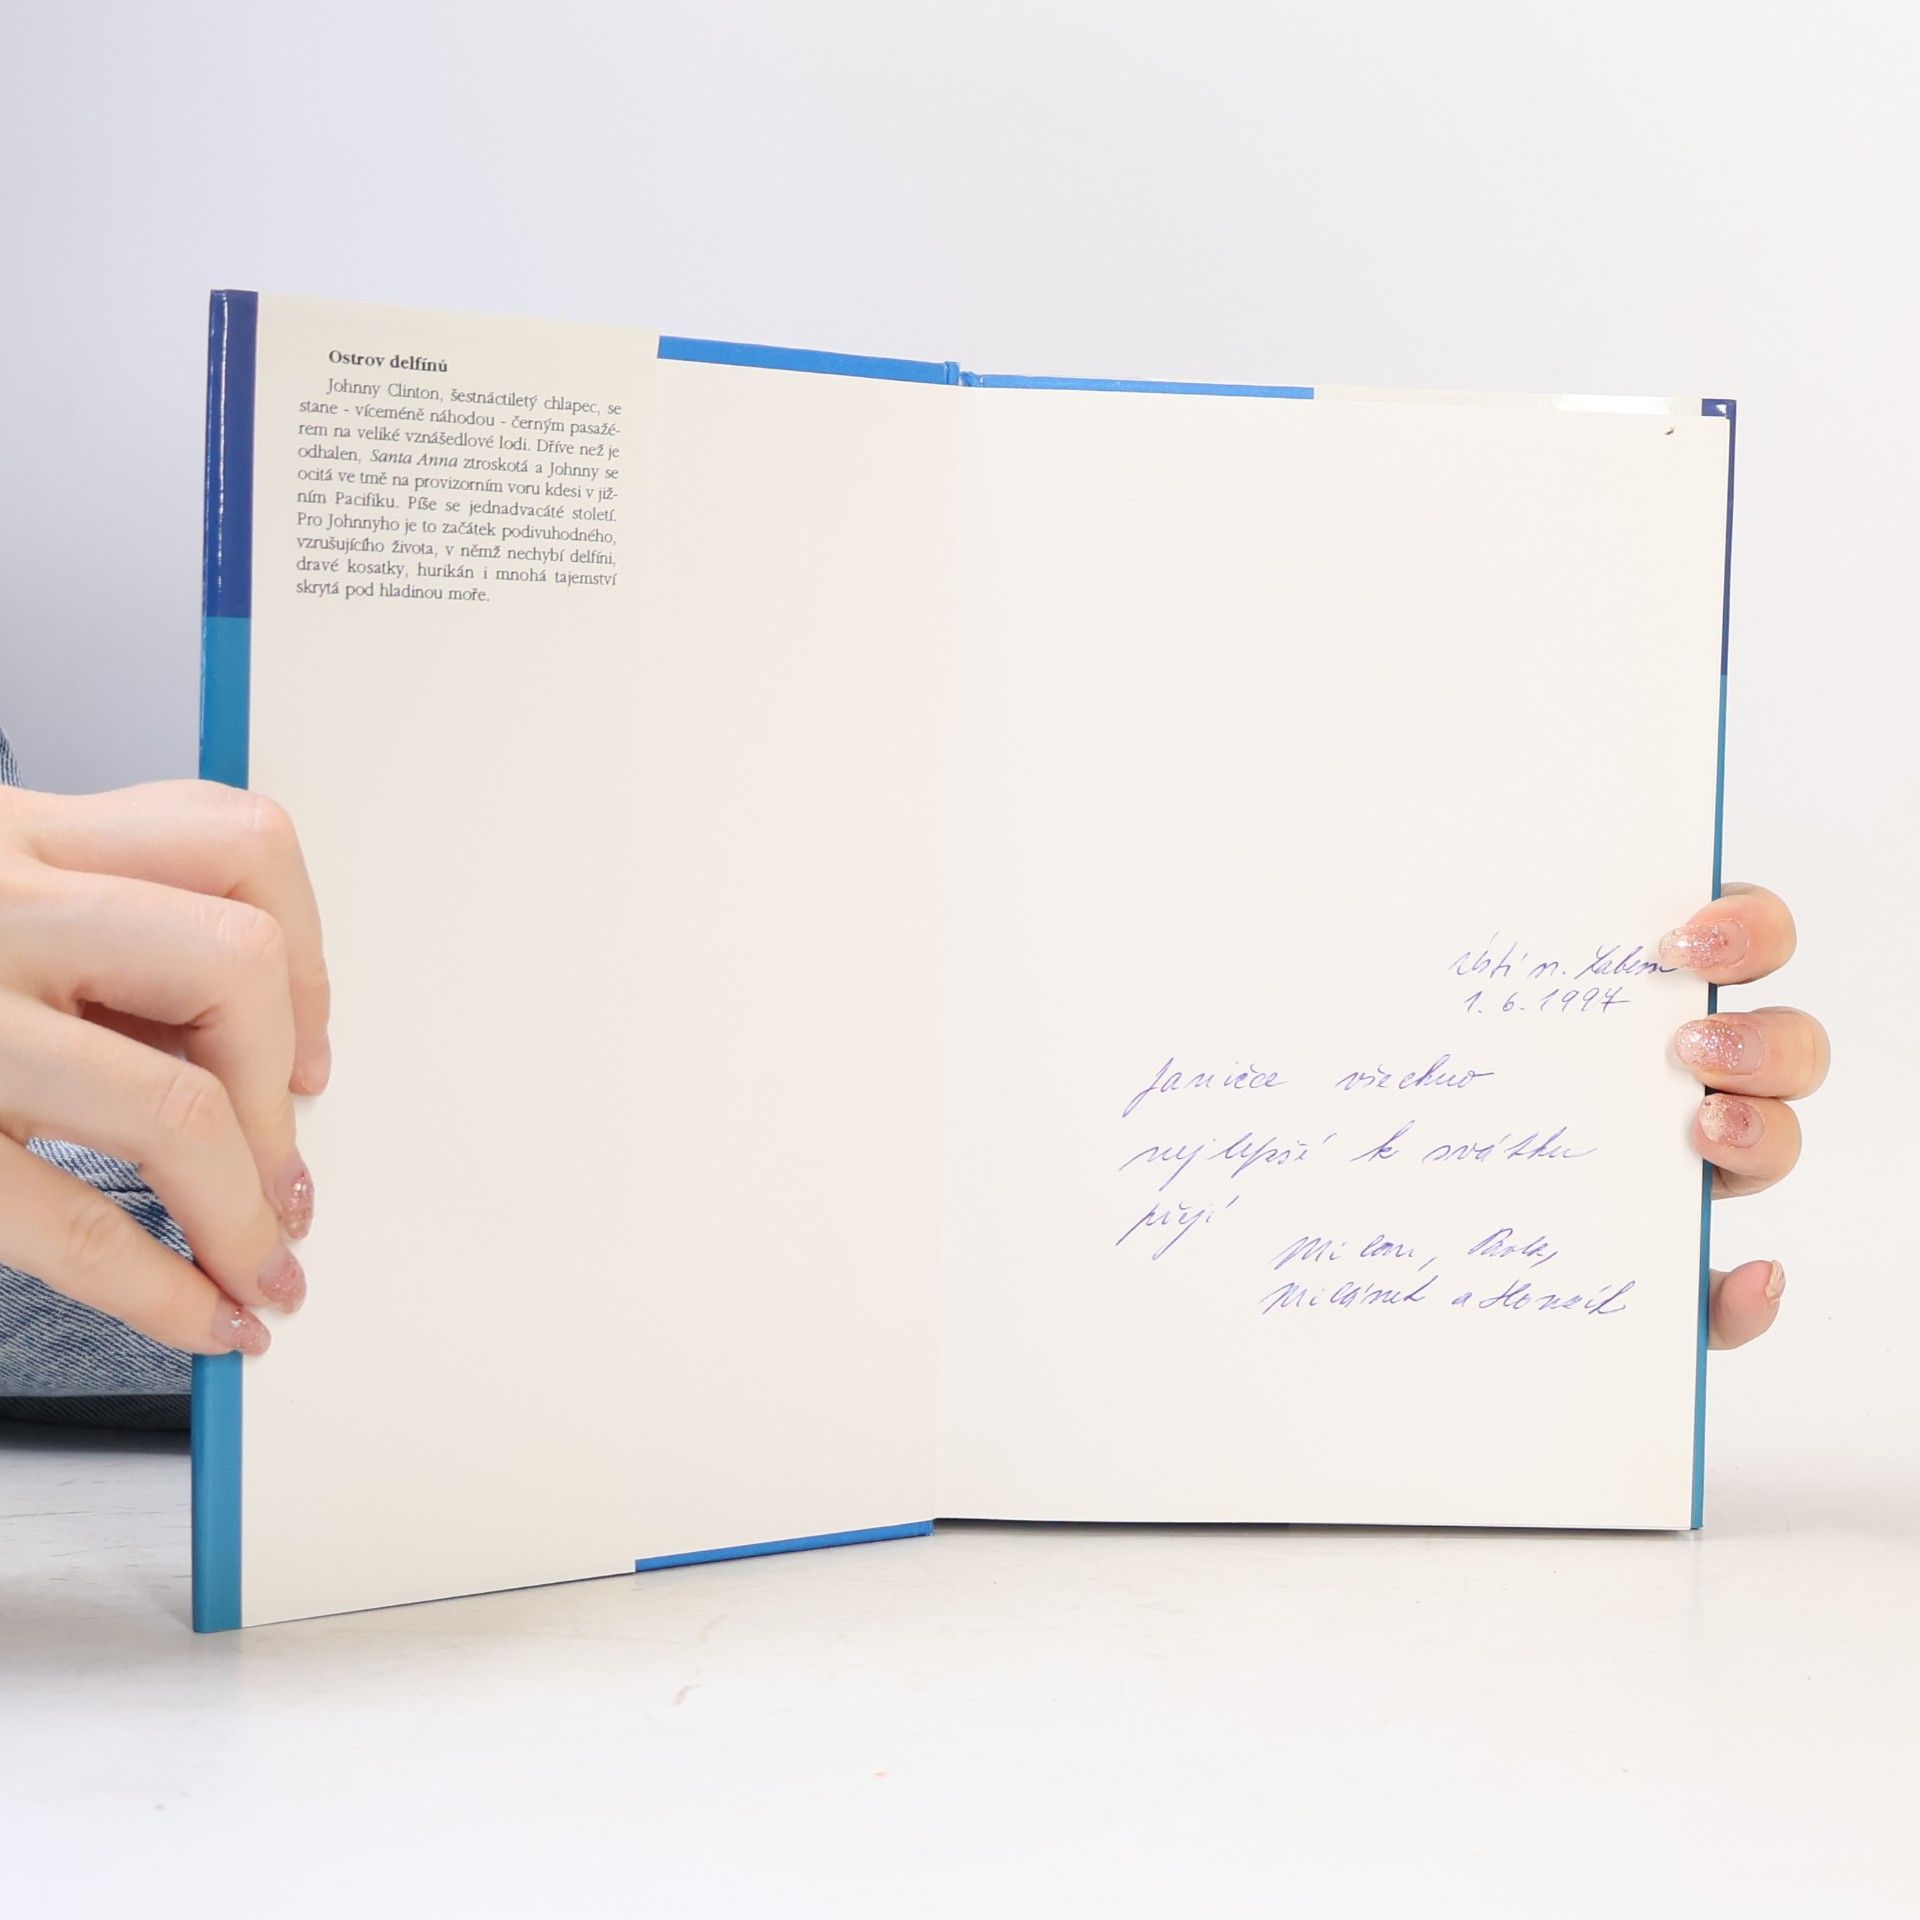 Ostrov delfínů
Johnny Clinton, šestnáctiletý chlapec, se
stane - víceméně náhodou - černým pasažé-
rem na veliké vznášedlové lodi. Dříve než je
odhalen, Santa Anna ztroskotá a Johnny se
ocitá ve tmě na provizorním voru kdesi v již-
ním Pacifiku. Píše se jednadvacáté století.
Pro Johnnyho je to začátek podivuhodného,
vzrušujícího života, v němž nechybí delfíni,
dravé kosatky, hurikán i mnohá tajemství
skrytá pod hladinou moře.
Ústí n. Labem
1. 6. 1997
Janičce všechno
nejlepší k svátku
přejí
Milan,
Milánek a Honzík